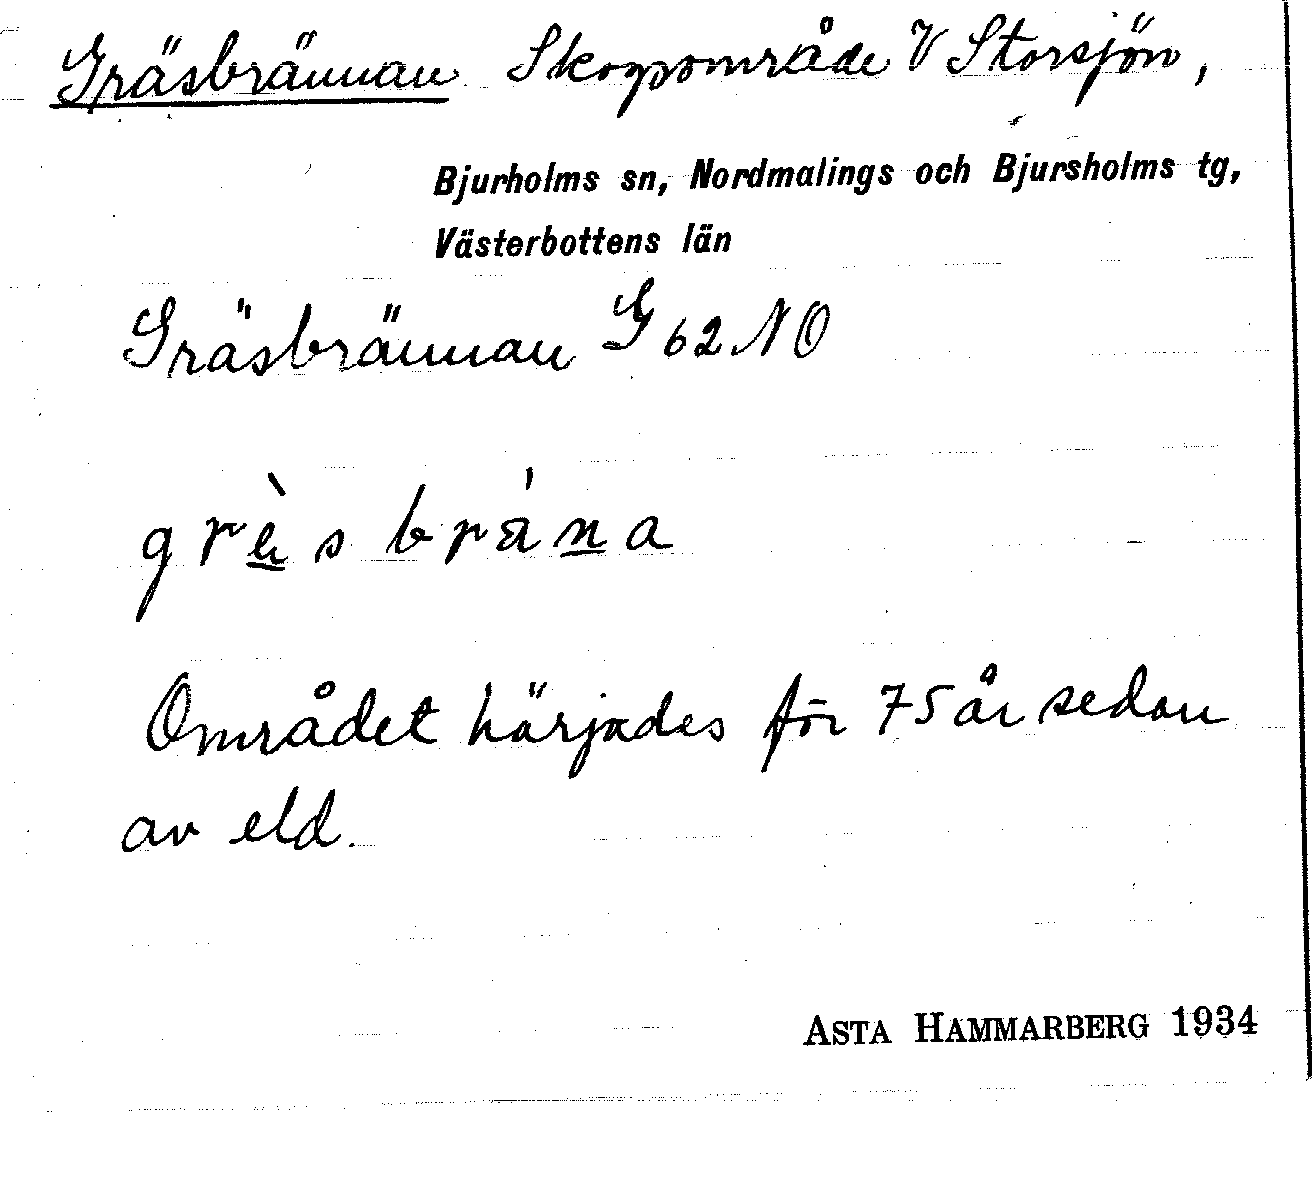 Gräsbrännan Skogsområde V Storsjön,
Bjurholms sn, Nordmalings och Bjursholms tg,
Västerbottens län
Gräsbrännan G 62 NO
grèsbräna
Området härjades för 75 år sedan
av eld.
ASTA HAMMARBERG 1934